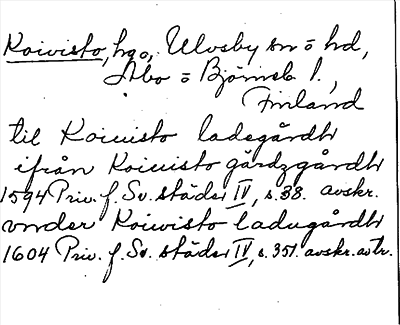 Koivisto, hgo, Ulvsby sn o hd,
Åbo o Björneb l.,
Finland
til Koiuisto ladegårdh
ifrån Koiuisto gårdzgårdh
1594 Priv. f. Sv. städer IV, s. 38. avskr.
vnder Koiwisto ladugårdh
1604 Priv. f. Sv. städer IV, s. 351. avskr. avtr.